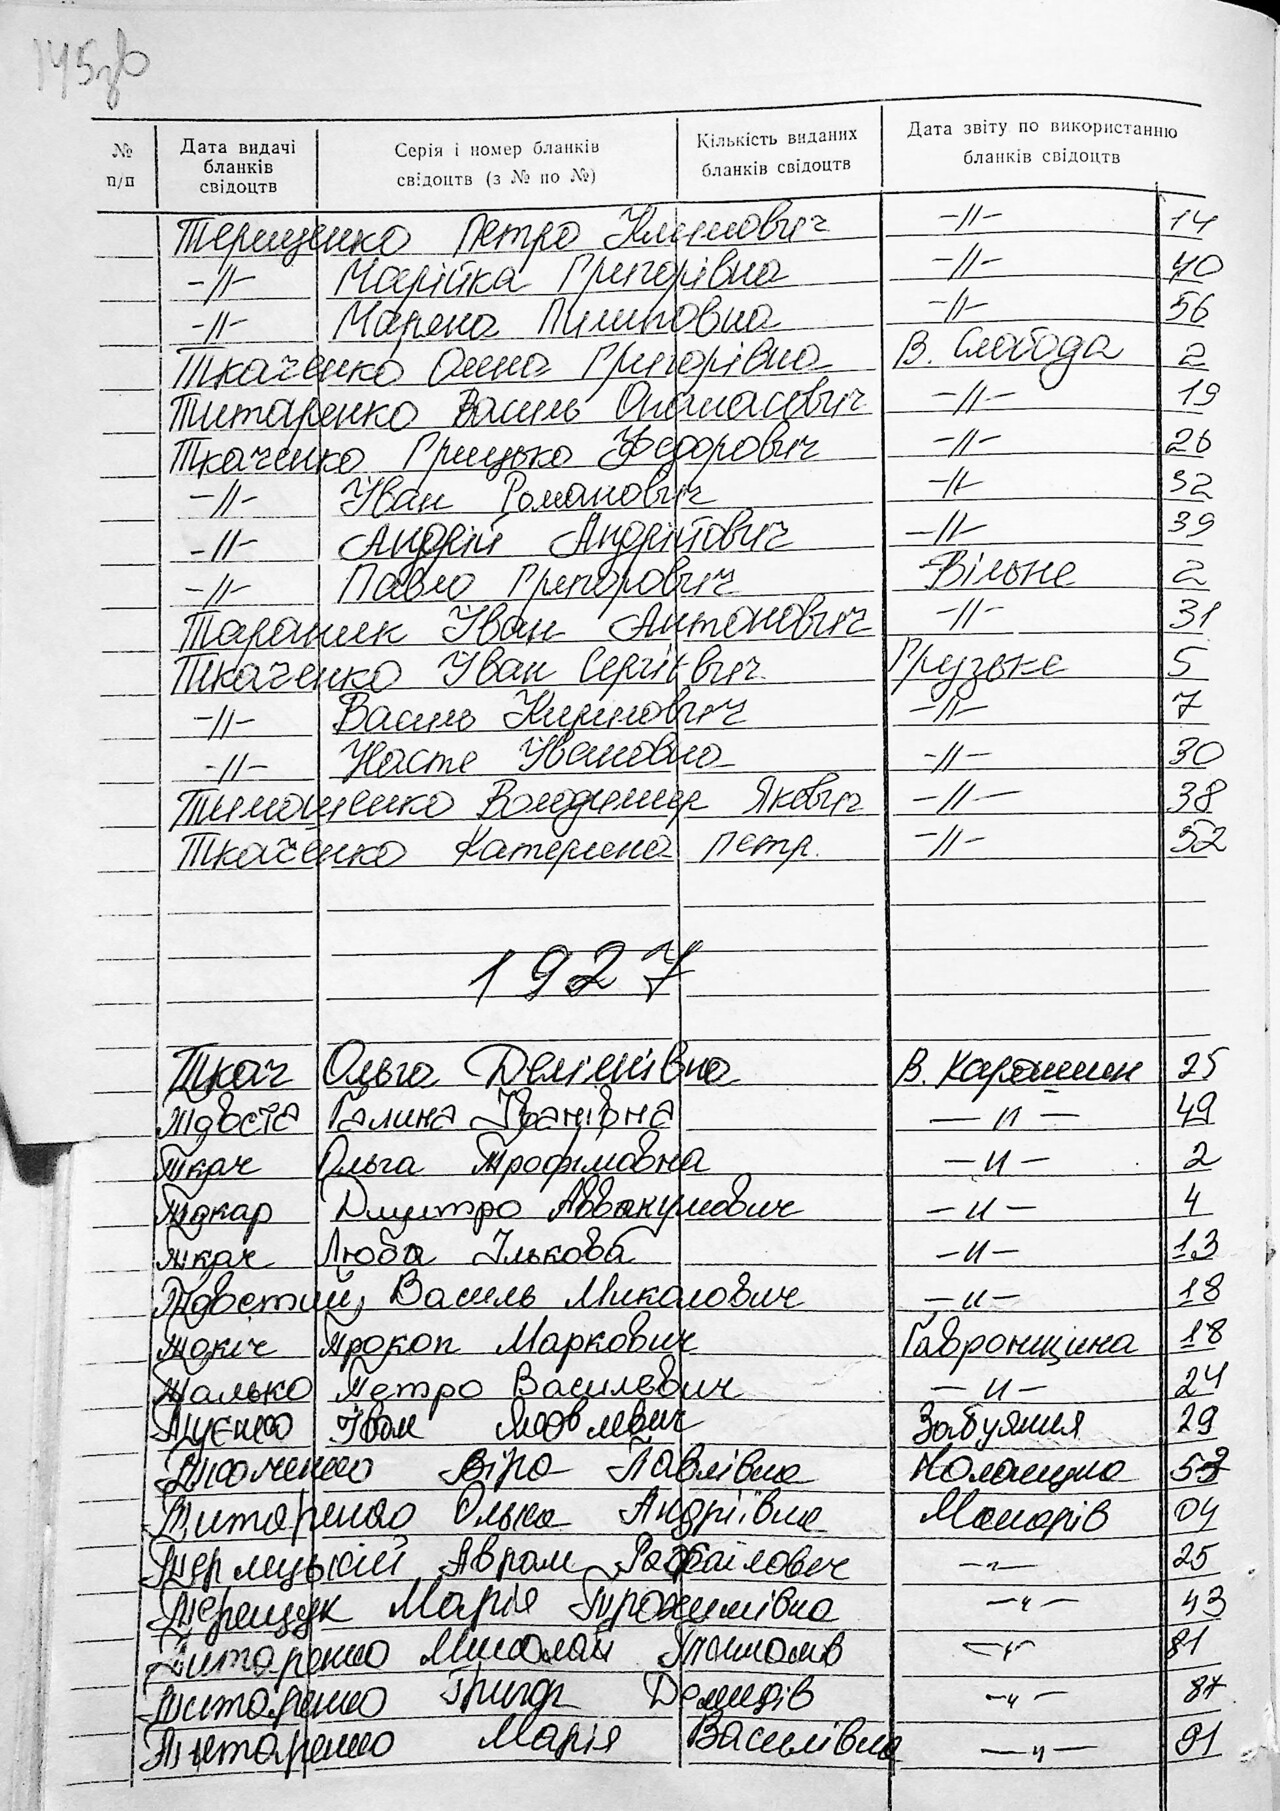 145зв
№ п/п | Дата видачі бланків свідоцтв | Серія і номер бланків свідоцтв (з № по №) | Кількість виданих бланків свідоцтв | Дата звіту по використанню бланків свідоцтв
Терещенко Петро Климович -//- 14
-//- Марійка Григорівна -//- 40
-//- Марена Пилиповна -//- 56
Ткаченко Олена Григорівна В. Слобода 2
Титаренко Василь Опанасович -//- 19
Ткаченко Грицько Федорович -//- 26
-//- Іван Романович -//- 32
-//- Андрій Андрійович -//- 39
-//- Павло Григорович Вільне 2
Тараник Іван Антонович -//- 31
Ткаченко Іван Сергієвич Грузьке 5
-//- Василь -//- 7
-//- Настя Івановна -//- 30
Тимошенко Володимир Яквич -//- 38
Ткаченко Катерина Петр. -//- 52
1927
Ткач Ольга В. Карашин 25
Галина Іванівна -//- 49
Ткач Ольга Трофимовна -//- 2
Токар Дмитро Аввакумович -//- 4
Ткач Люба Ількова -//- 13
Василь Миколович -//- 18
Прокоп Маркович Гавронщина 18
Талько Петро Василевич -//- 24
Іван Яковлевич Забуяння 29
Віра Павлівна Колонщина
Титаренко Олька Андріївна Макарів 04
Аврам Рафаїлович -"- 25
Терещук Марія -"- 43
Титаренко Миколай -"- 81
Титаренко Григор Демидів -"- 87
Титаренко Марія Василівна -"- 91